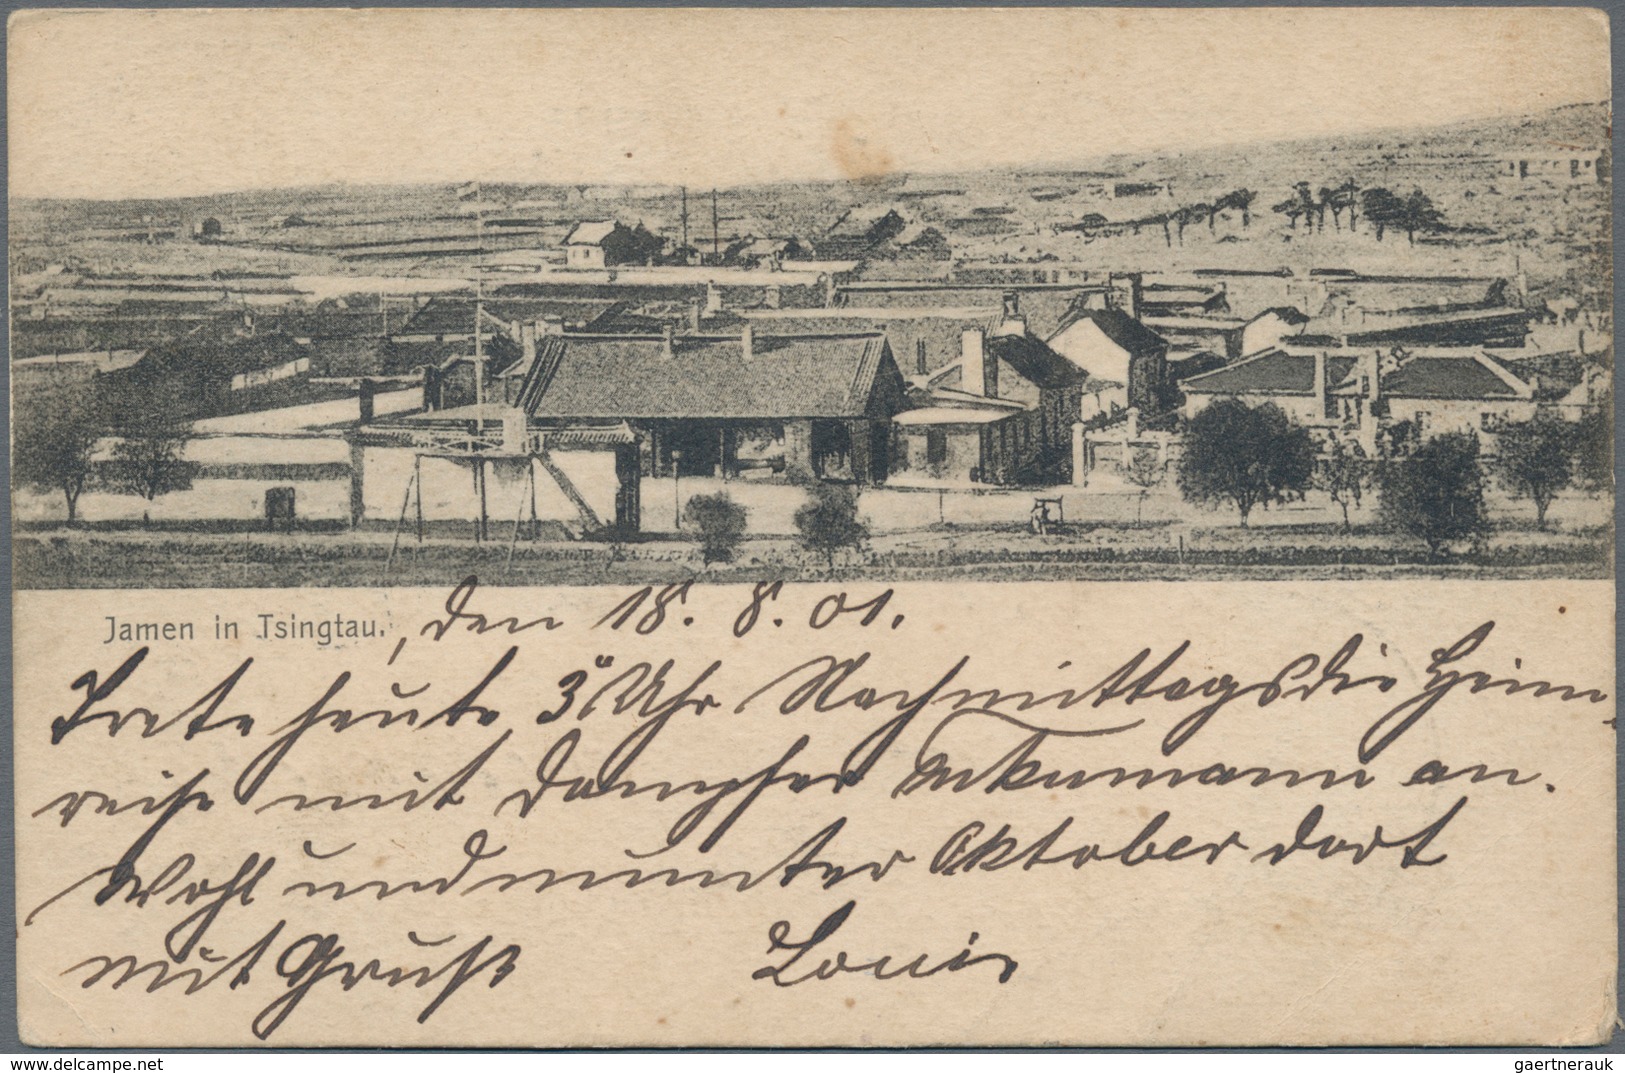 Jamen in Tsingtau., den 18. 8. 01.
Trete heute 3 Uhr Nachmittags die Heim-
reise mit Dampfer an.
Wohl und munter Oktober dort
mit Gruß Louis
delcampe.net
gaertnerauk